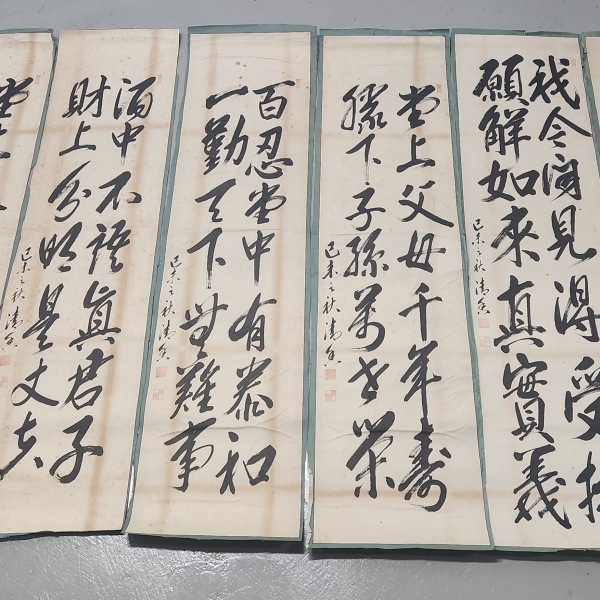 我今聞見得受持
願解如來真實義
己未之秋
堂上父母千年壽
膝下子孫萬世榮
己未之秋
百忍堂中有泰和
一勤天下無難事
己未之秋
酒中不語真君子
財上分明是丈夫
己未之秋